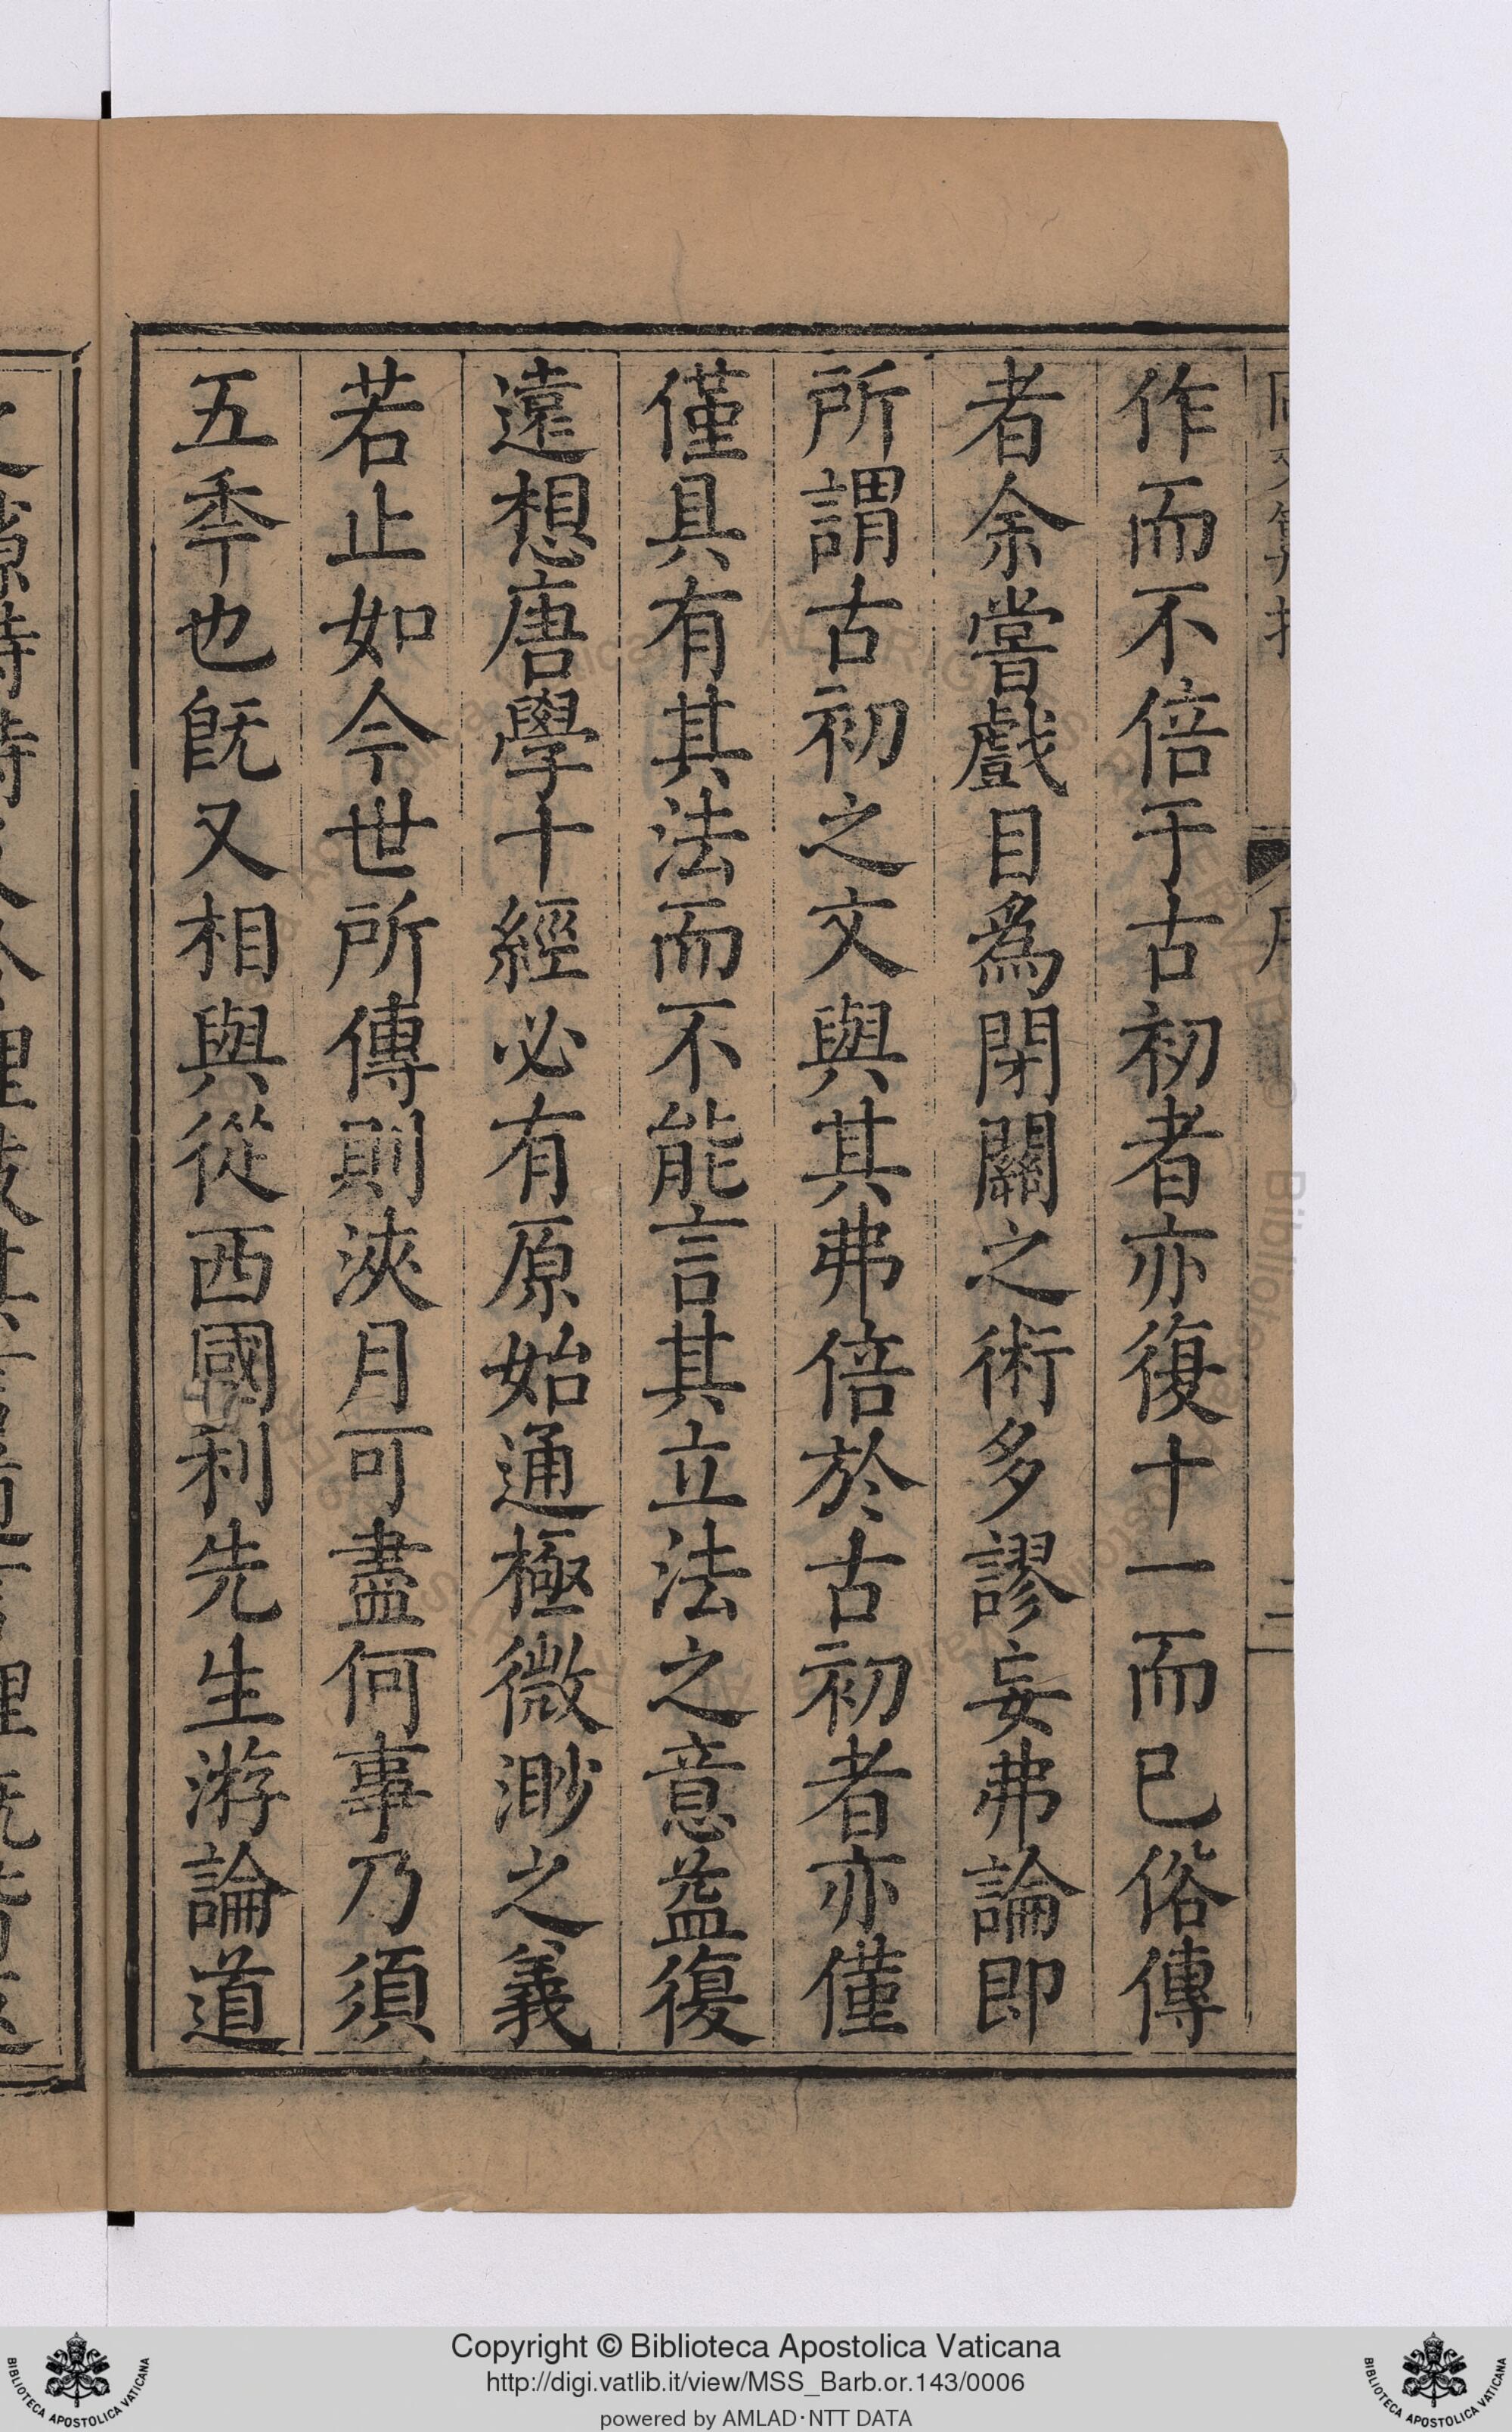 作而不倍于古初者亦復十一而已俗傳
者余嘗戲目爲閉關之術多謬妄弗論即
所謂古初之文與其弗倍於古初者亦僅
僅具有其法而不能言其立法之意益復
遠想唐學十經必有原始通極微渺之義
若止如今世所傳則浹月可盡何事乃須
五季也既又相與從西國利先生游論道
Copyright © Biblioteca Apostolica Vaticana
http://digi.vatlib.it/view/MSS_Barb.or.143/0006
powered by AMLAD·NTT DATA
BIBLIOTECA APOSTOLICA VATICANA
BIBLIOTECA APOSTOLICA VATICANA